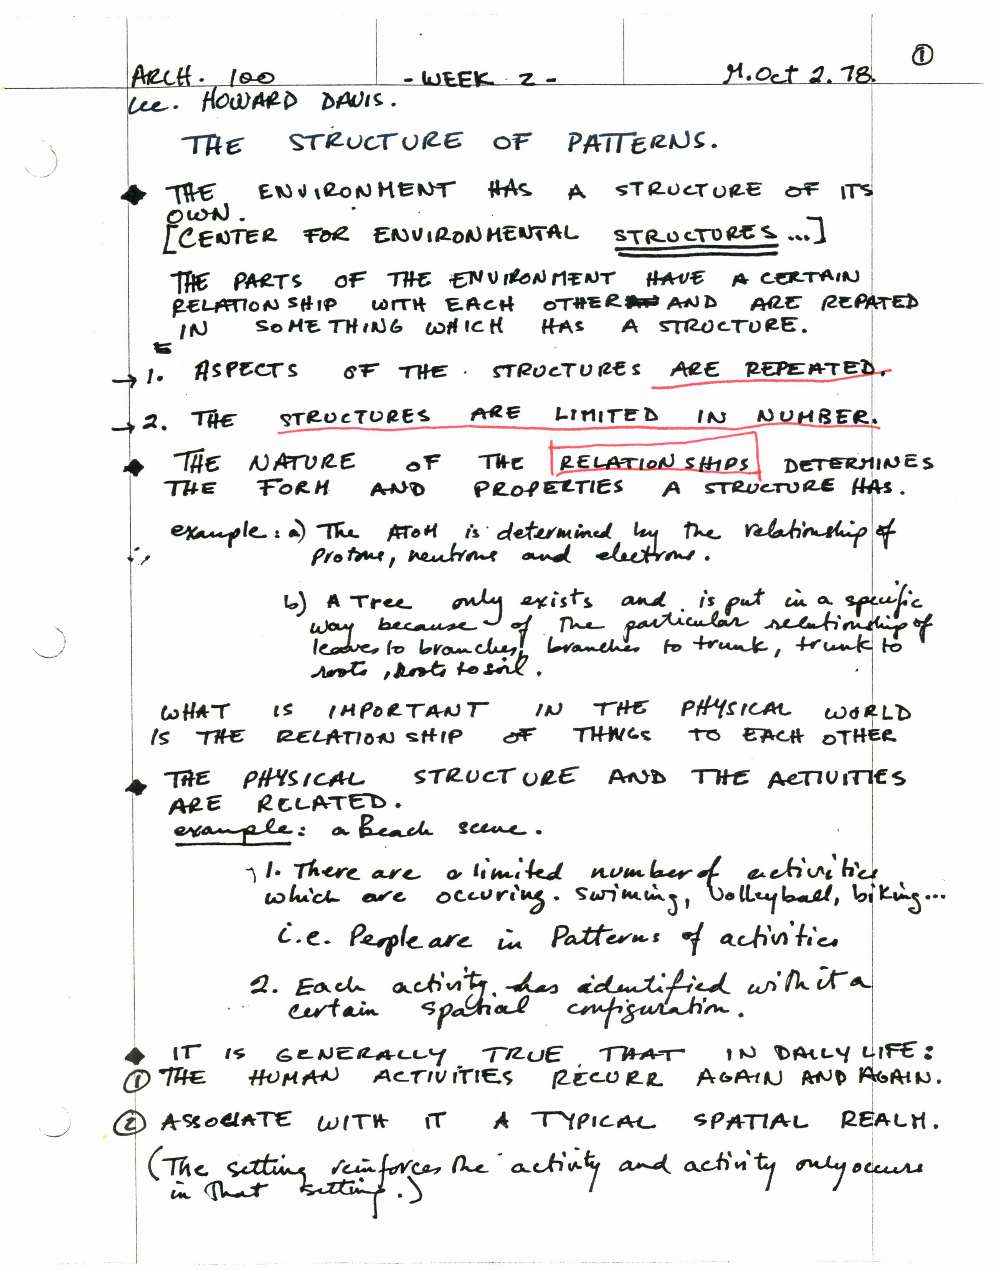 ①
ARCH. 100 - WEEK 2 - M. Oct 2. 78.
Lec. HOWARD DAVIS.
THE STRUCTURE OF PATTERNS.
◆ THE ENVIRONMENT HAS A STRUCTURE OF ITS
OWN.
[CENTER FOR ENVIRONMENTAL STRUCTURES ...]
THE PARTS OF THE ENVIRONMENT HAVE A CERTAIN
RELATIONSHIP WITH EACH OTHER AND ARE REPATED
IN SOMETHING WHICH HAS A STRUCTURE.
→ 1. ASPECTS OF THE STRUCTURES ARE REPEATED.
→ 2. THE STRUCTURES ARE LIMITED IN NUMBER.
◆ THE NATURE OF THE RELATIONSHIPS DETERMINES
THE FORM AND PROPERTIES A STRUCTURE HAS.
example: a) The ATOM is determined by the relationship of
protons, neutrons and electrons.
b) A Tree only exists and is put in a specific
way because of the particular relationship of
leaves to branches, branches to trunk, trunk to
roots, roots to soil.
WHAT IS IMPORTANT IN THE PHYSICAL WORLD
IS THE RELATIONSHIP OF THINGS TO EACH OTHER
◆ THE PHYSICAL STRUCTURE AND THE ACTIVITIES
ARE RELATED.
example: a Beach scene.
1. There are a limited number of activities
which are occuring. swiming, Volleyball, biking...
i.e. People are in Patterns of activities
2. Each activity has identified with it a
certain spatial configuration.
◆ IT IS GENERALLY TRUE THAT IN DAILY LIFE:
① THE HUMAN ACTIVITIES RECURR AGAIN AND AGAIN.
② ASSOCIATE WITH IT A TYPICAL SPATIAL REALM.
(The setting reinforces the activity and activity only occurs
in that setting.)